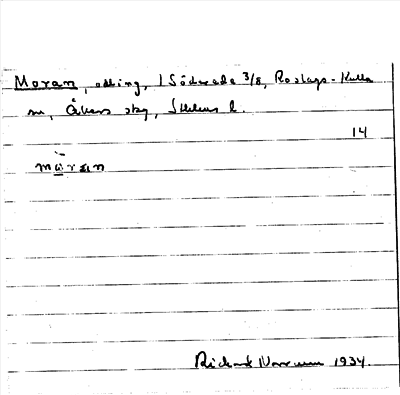 Moran, odling, 1 Söderada 3/8, Roslags-Kulla
sn, Åkers skg, Sthlms l.
14
Richard Norrman 1934.